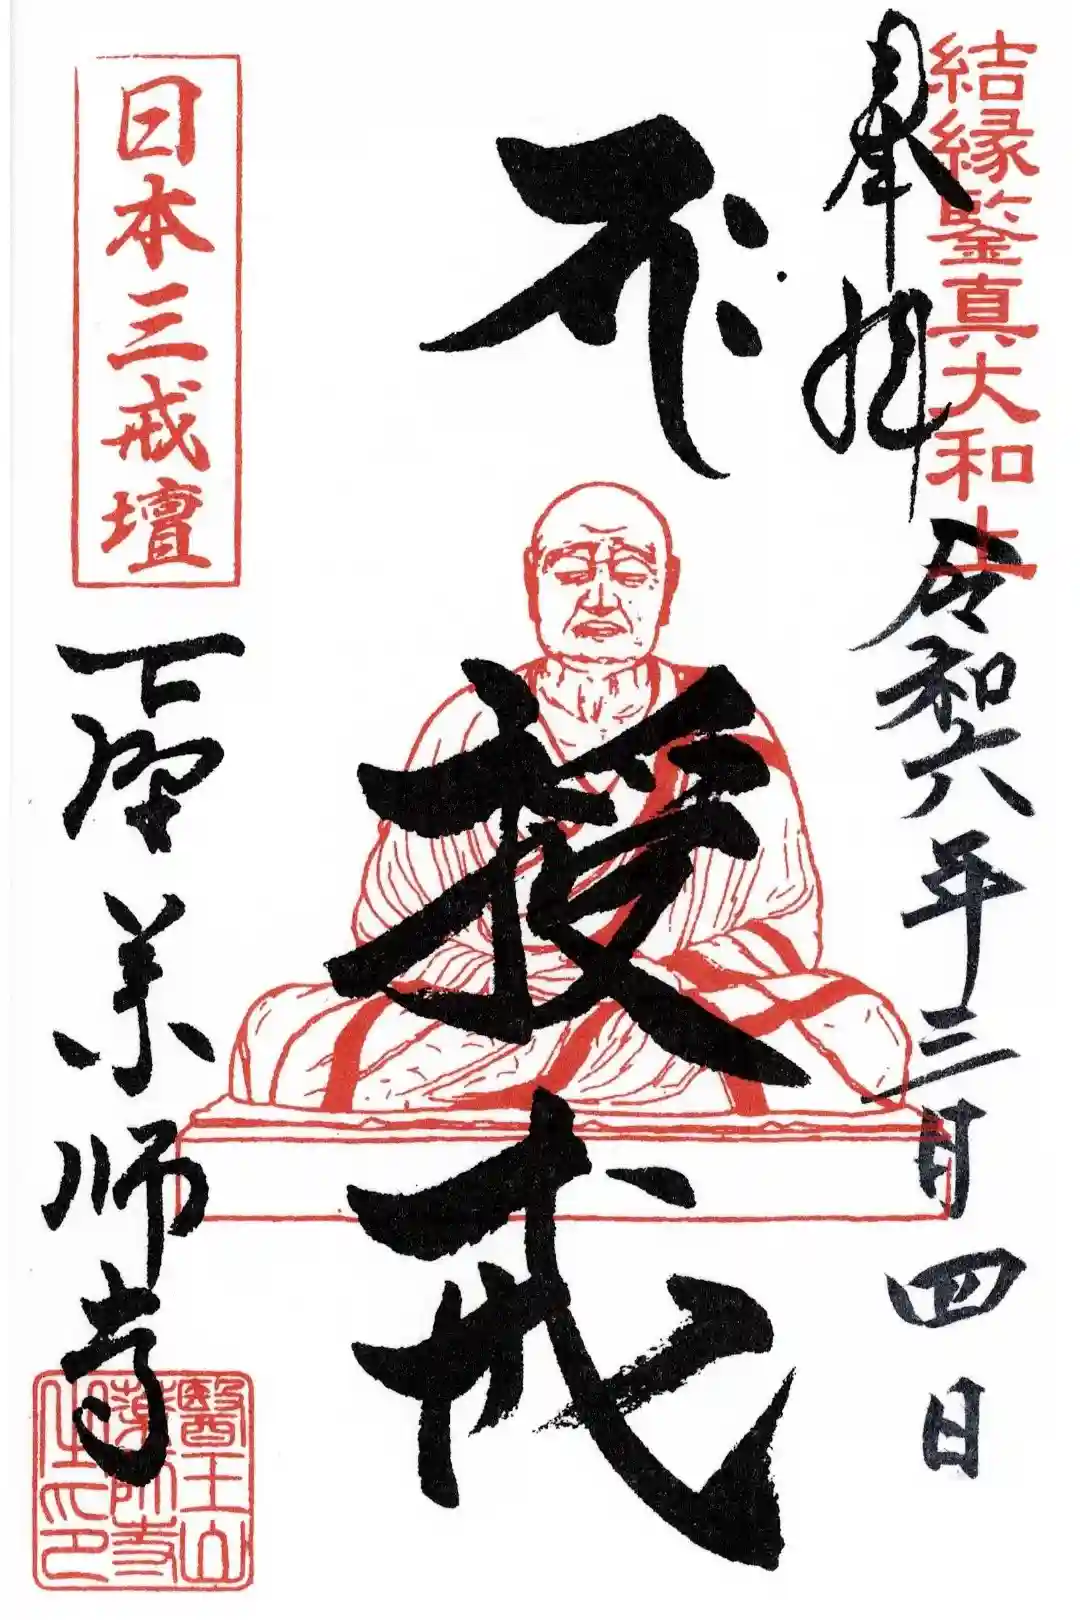 結縁鑒真大和上
奉拝
令和六年三月四日
不
授戒
日本三戒壇
下野薬師寺
醫王山
薬師寺
住印